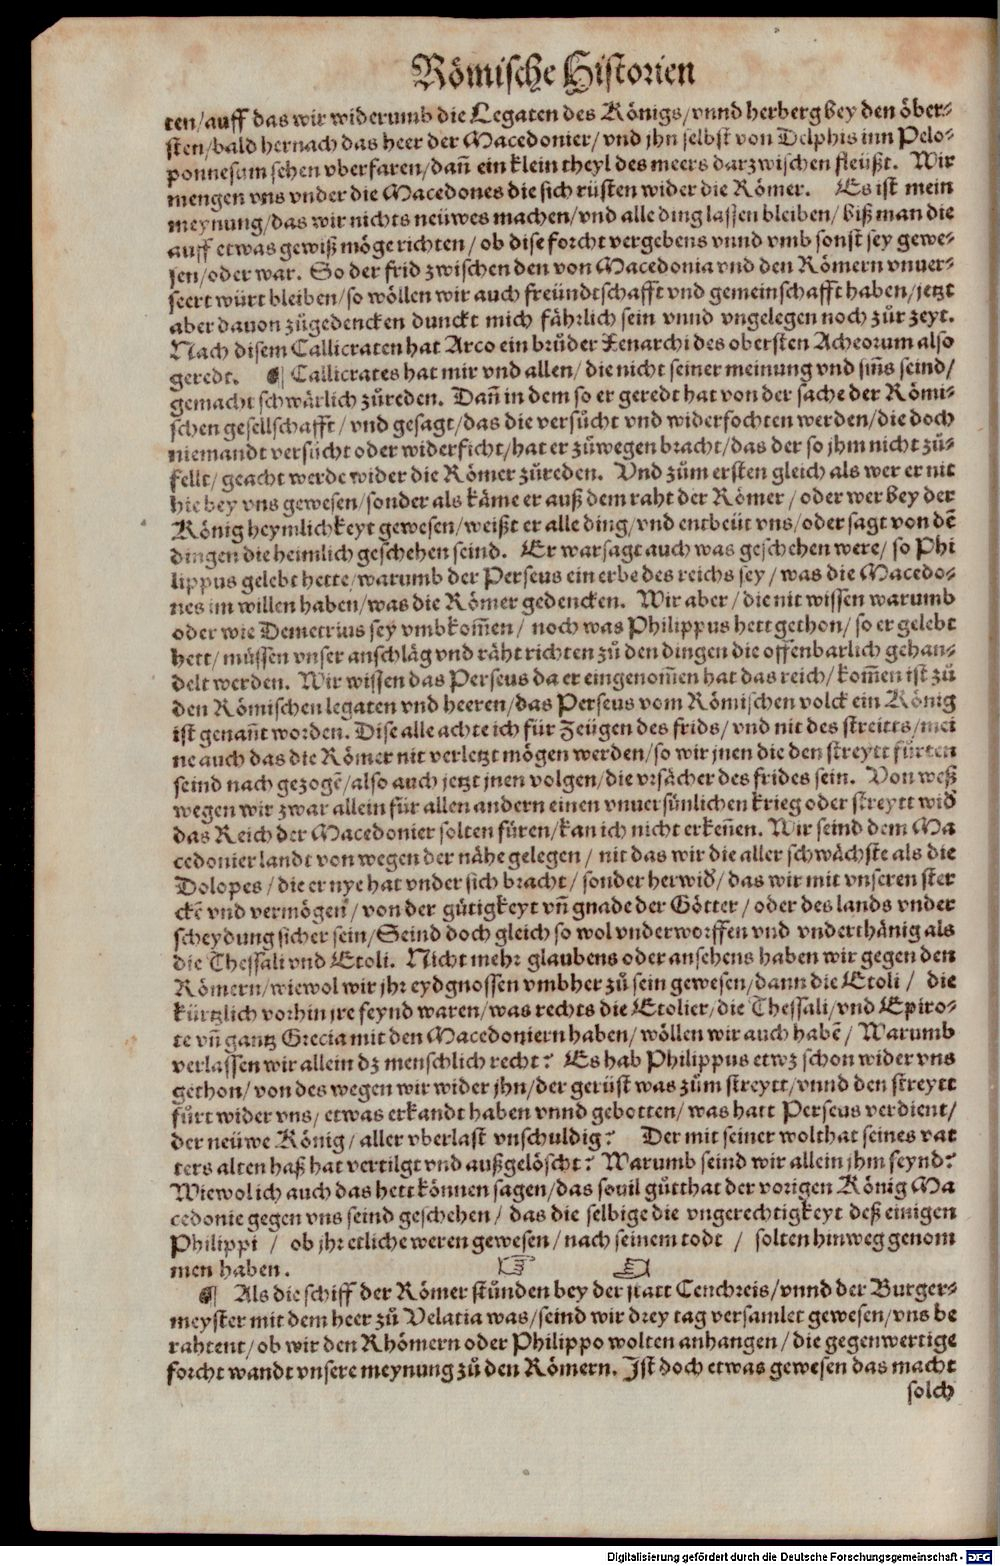 Römische Historien
ten/auff das wir widerumb die Legaten des Königs/vnnd herberg bey den öber-
sten/bald hernach das heer der Macedonier/vnd jhn selbst von Delphis inn Pelo-
ponnesum sehen vberfaren/dañ ein klein theyl des meers darzwischen fleüßt. Wir
mengen vns vnder die Macedones die sich rüsten wider die Römer. Es ist mein
meynung/das wir nichts neüwes machen/vnd alle ding lassen bleiben/biß man die
auff etwas gewiß möge richten/ob dise forcht vergebens vnnd vmb sonst sey gewe-
sen/oder war. So der frid zwischen den von Macedonia vnd den Römern vnuer-
seert würt bleiben/so wöllen wir auch freündtschafft vnd gemeinschafft haben/jetzt
aber dauon zůgedencken dunckt mich fährlich sein vnnd vngelegen noch zůr zeyt.
Nach disem Callicraten hat Arco ein brůder Xenarchi des obersten Acheorum also
geredt. ¶ Callicrates hat mir vnd allen/die nicht seiner meinung vnd siñs seind/
gemacht schwärlich zůreden. Dañ in dem so er geredt hat von der sache der Römi-
schen gesellschafft/vnd gesagt/das die versůcht vnd widerfochten werden/die doch
niemandt versůcht oder widerficht/hat er zůwegen bracht/das der so jhm nicht zů-
fellt/geacht werde wider die Römer zůreden. Vnd zům ersten gleich als wer er nit
hie bey vns gewesen/sonder als käme er auß dem raht der Römer/oder wer bey der
König heymlichkeyt gewesen/weißt er alle ding/vnd entbeüt vns/oder sagt von dē
dingen die heimlich geschehen seind. Er warsagt auch was geschehen were/so Phi
lippus gelebt hette/warumb der Perseus ein erbe des reichs sey/was die Macedo-
nes im willen haben/was die Römer gedencken. Wir aber/die nit wissen warumb
oder wie Demetrius sey vmbkom̃en/noch was Philippus hett gethon/so er gelebt
hett/müssen vnser anschläg vnd räht richten zů den dingen die offenbarlich gehan-
delt werden. Wir wissen das Perseus da er eingenom̃en hat das reich/kom̃en ist zů
den Römischen legaten vnd heeren/das Perseus vom Römischen volck ein König
ist genañt worden. Dise alle achte ich für Zeügen des frids/vnd nit des streitts/mei
ne auch das die Römer nit verletzt mögen werden/so wir jnen die den streytt fürten
seind nach gezogē/also auch jetzt jnen volgen/die vrsächer des frides sein. Von weß
wegen wir zwar allein für allen andern einen vnuersünlichen krieg oder streytt wid̕
das Reich der Macedonier solten füren/kan ich nicht erkeñen. Wir seind dem Ma
cedonier landt von wegen der nähe gelegen/nit das wir die aller schwächste als die
Dolopes/die er nye hat vnder sich bracht/sonder herwid̕/das wir mit vnseren ster
ckē vnd vermögen/von der gütigkeyt vñ gnade der Götter/oder des lands vnder
scheydung sicher sein/Seind doch gleich so wol vnderworffen vnd vnderthänig als
die Thessali vnd Etoli. Nicht mehr glaubens oder ansehens haben wir gegen den
Römern/wiewol wir jhr eydgnossen vmbher zů sein gewesen/dann die Etoli/die
kürtzlich vorhin jre feynd waren/was rechts die Etolier/die Thessali/vnd Epiro-
te vñ gantz Grecia mit den Macedoniern haben/wöllen wir auch habē/Warumb
verlassen wir allein dz menschlich recht? Es hab Philippus etwz schon wider vns
gethon/von des wegen wir wider jhn/der gerüst was zům streytt/vnnd den streytt
fůrt wider vns/etwas erkandt haben vnnd gebotten/was hatt Perseus verdient/
der neüwe König/aller vberlast vnschuldig? Der mit seiner wolthat seines vat
ters alten haß hat vertilgt vnd außgelöscht? Warumb seind wir allein jhm feynd?
Wiewol ich auch das hett können sagen/das souil gůtthat der vorigen König Ma
cedonie gegen vns seind geschehen/das die selbige die vngerechtigkeyt deß einigen
Philippi/ob jhr etliche weren gewesen/nach seinem todt/solten hinweg genom
men haben.
¶ Als die schiff der Römer stůnden bey der statt Cenchreis/vnnd der Burger-
meyster mit dem heer zů Velatia was/seind wir drey tag versamlet gewesen/vns be
rahtent/ob wir den Rhömern oder Philippo wolten anhangen/die gegenwertige
forcht wandt vnsere meynung zů den Römern. Ist doch etwas gewesen das macht
solch
Digitalisierung gefördert durch die Deutsche Forschungsgemeinschaft - DFG